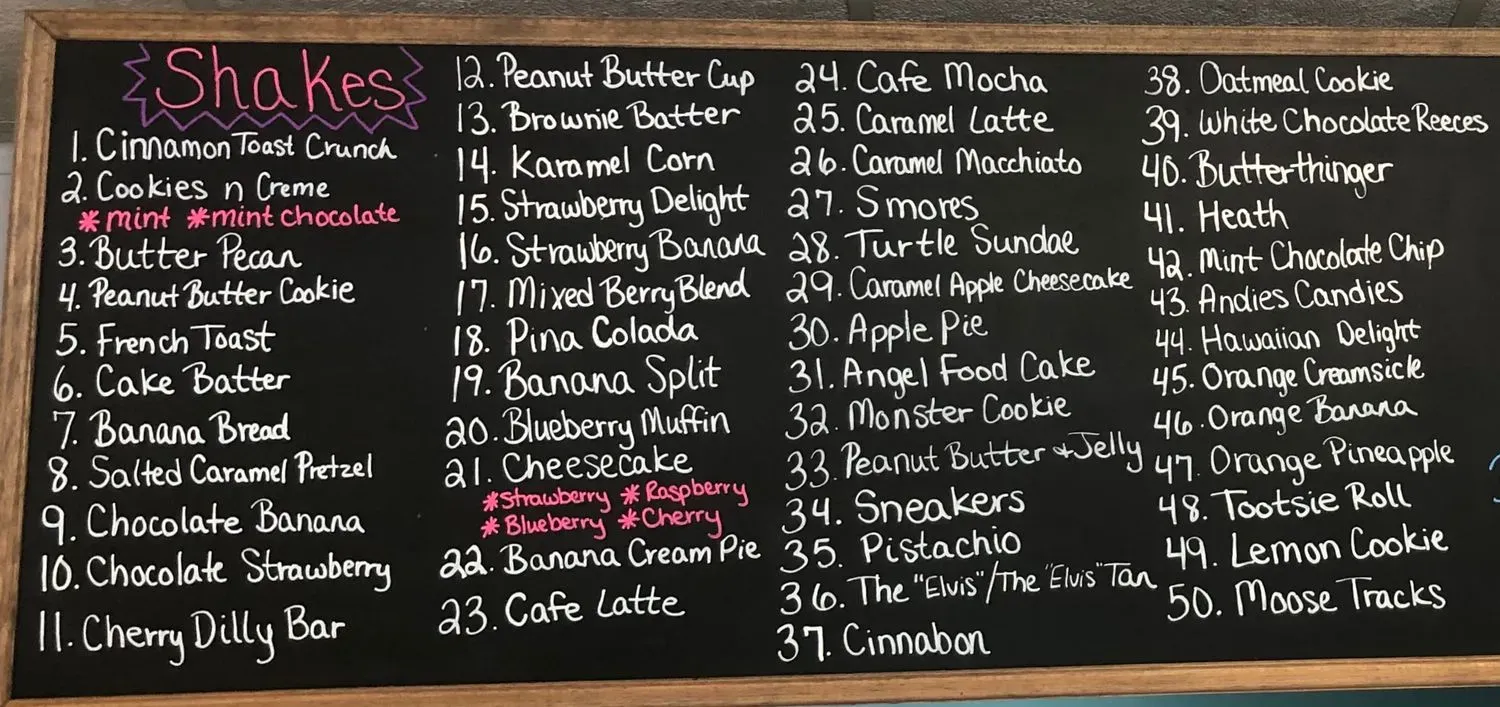 Shakes
1. Cinnamon Toast Crunch
2. Cookies n Creme
*mint *mint chocolate
3. Butter Pecan
4. Peanut Butter Cookie
5. French Toast
6. Cake Batter
7. Banana Bread
8. Salted Caramel Pretzel
9. Chocolate Banana
10. Chocolate Strawberry
11. Cherry Dilly Bar
12. Peanut Butter Cup
13. Brownie Batter
14. Karamel Corn
15. Strawberry Delight
16. Strawberry Banana
17. Mixed Berry Blend
18. Pina Colada
19. Banana Split
20. Blueberry Muffin
21. Cheesecake
*Strawberry *Raspberry
*Blueberry *Cherry
22. Banana Cream Pie
23. Cafe Latte
24. Cafe Mocha
25. Caramel Latte
26. Caramel Macchiato
27. Smores
28. Turtle Sundae
29. Caramel Apple Cheesecake
30. Apple Pie
31. Angel Food Cake
32. Monster Cookie
33. Peanut Butter & Jelly
34. Sneakers
35. Pistachio
36. The "Elvis"/The "Elvis" Tan
37. Cinnabon
38. Oatmeal Cookie
39. White Chocolate Reeces
40. Butterthinger
41. Heath
42. Mint Chocolate Chip
43. Andies Candies
44. Hawaiian Delight
45. Orange Creamsicle
46. Orange Banana
47. Orange Pineapple
48. Tootsie Roll
49. Lemon Cookie
50. Moose Tracks